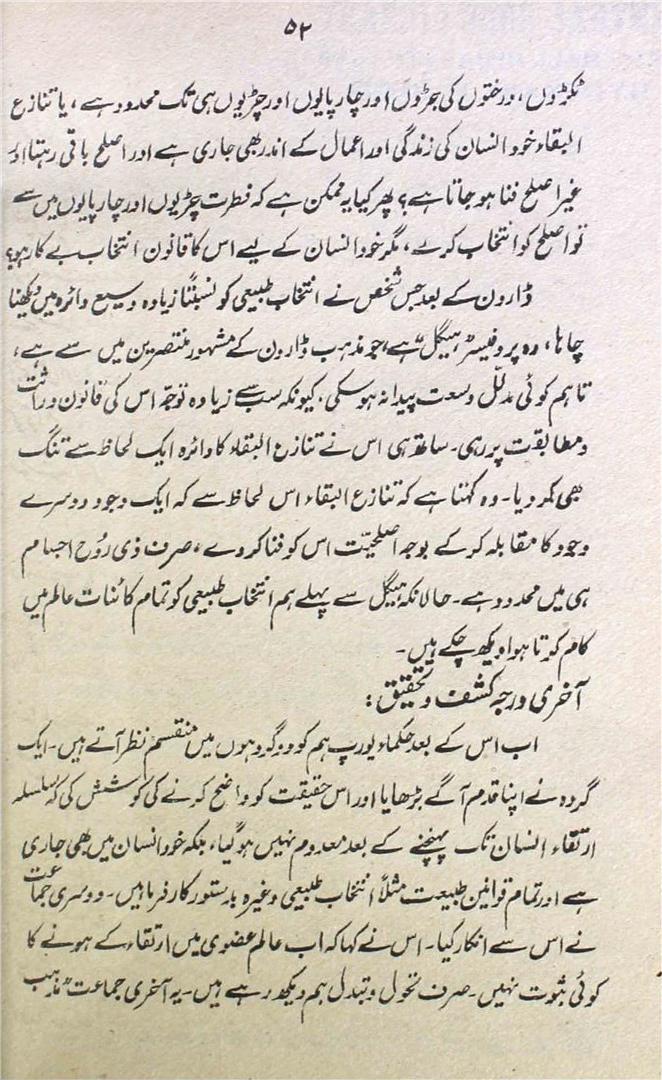 ۵۲
ٹکڑوں، درختوں کی جڑوں اور چارپایوں اور چڑیوں ہی تک محدود ہے، یا تنازع
البقاء خود انسان کی زندگی اور اعمال کے اندر بھی جاری ہے اور اصلح باقی رہتا اور
غیر اصلح فنا ہو جاتا ہے؟ پھر کیا یہ ممکن ہے کہ فطرت چڑیوں اور چارپایوں میں سے
تو اصلح کو انتخاب کرے، مگر خود انسان کے لیے اس کا قانون انتخاب بے کار ہو؟
ڈارون کے بعد جس شخص نے انتخاب طبیعی کو نسبتًا زیادہ وسیع دائرہ میں دیکھنا
چاہا، وہ پروفیسر ہیگل ہے، جو مذہب ڈارون کے مشہور منتصرین میں سے ہے،
تاہم کوئی مدلل وسعت پیدا نہ ہو سکی، کیونکہ سب سے زیادہ توجہ اس کی قانون وراثت
و مطابقت پر رہی۔ ساتھ ہی اس نے تنازع البقاء کا دائرہ ایک لحاظ سے تنگ
بھی کر دیا۔ وہ کہتا ہے کہ تنازع البقاء اس لحاظ سے کہ ایک وجود دوسرے
وجود کا مقابلہ کر کے بوجہ اصلحیّت اس کو فنا کر دے، صرف ذی رُوح اجسام
ہی میں محدود ہے۔ حالانکہ ہیگل سے پہلے ہم انتخاب طبیعی کو تمام کائنات عالم میں
کام کرتا ہوا دیکھ چکے ہیں۔
آخری درجہ کشف و تحقیق:
اب اس کے بعد حکماء یورپ ہم کو دو گروہوں میں منقسم نظر آتے ہیں۔ ایک
گروہ نے اپنا قدم آگے بڑھایا اور اس حقیقت کو واضح کرنے کی کوشش کی کہ سلسلہ
ارتقاء انسان تک پہنچنے کے بعد معدوم نہیں ہو گیا، بلکہ خود انسان میں بھی جاری
ہے اور تمام قوانین طبیعت مثلاً انتخاب طبیعی وغیرہ بدستور کارفرما ہیں۔ دوسری جماعت
نے اس سے انکار کیا۔ اس نے کہا کہ اب عالم عضوی میں ارتقاء کے ہونے کا
کوئی ثبوت نہیں۔ صرف تحول و تبدل ہم دیکھ رہے ہیں۔ یہ آخری جماعت "مذہب